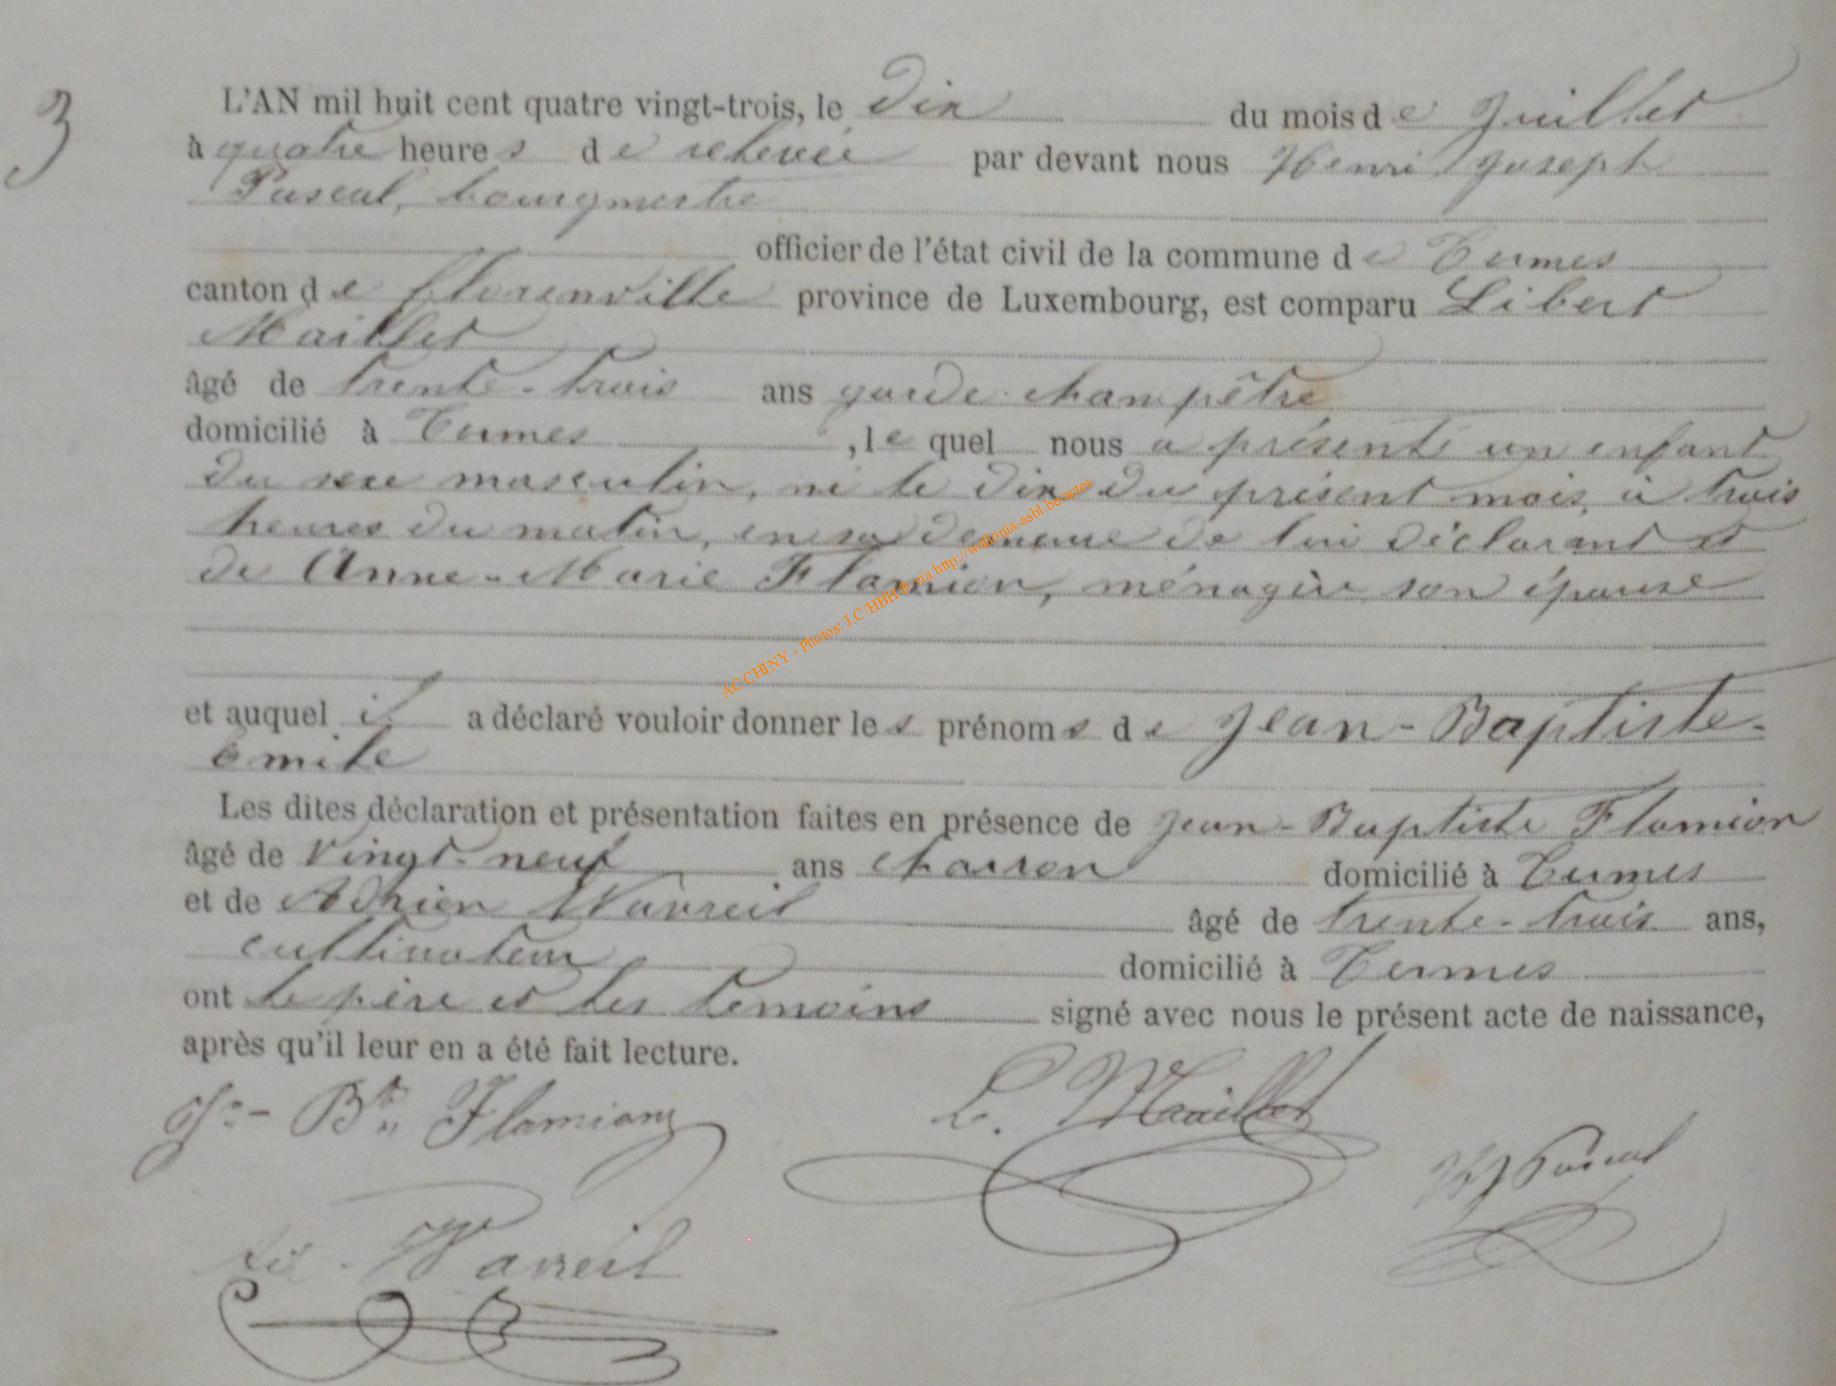 3
L'AN mil huit cent quatre vingt-trois, le dix du mois de Juillet
à quatre heures de relevée par devant nous Henri Joseph
Pascal, bourgmestre
officier de l'état civil de la commune de Termes
canton de Florenville province de Luxembourg, est comparu Libert
Maillet
âgé de trente-trois ans garde-champêtre
domicilié à Termes, lequel nous a présenté un enfant
du sexe masculin, né le dix du présent mois, à trois
heures du matin, en sa demeure de lui déclarant et
de Anne-Marie Flamion, ménagère son épouse
et auquel il a déclaré vouloir donner les prénoms de Jean-Baptiste-
émile
Les dites déclaration et présentation faites en présence de Jean-Baptiste Flamion
âgé de vingt-neuf ans charron domicilié à Termes
et de Adrien Wavreil âgé de trente-trois ans,
cultivateur domicilié à Termes
ont le père et les témoins signé avec nous le présent acte de naissance,
après qu'il leur en a été fait lecture.
Jn- Bte Flamion L. Maillet
HJ Pascal
Ad. Wavreil
AC CHINY - Photos: J.C/HBH via http://wallonia-asbl.be/actes